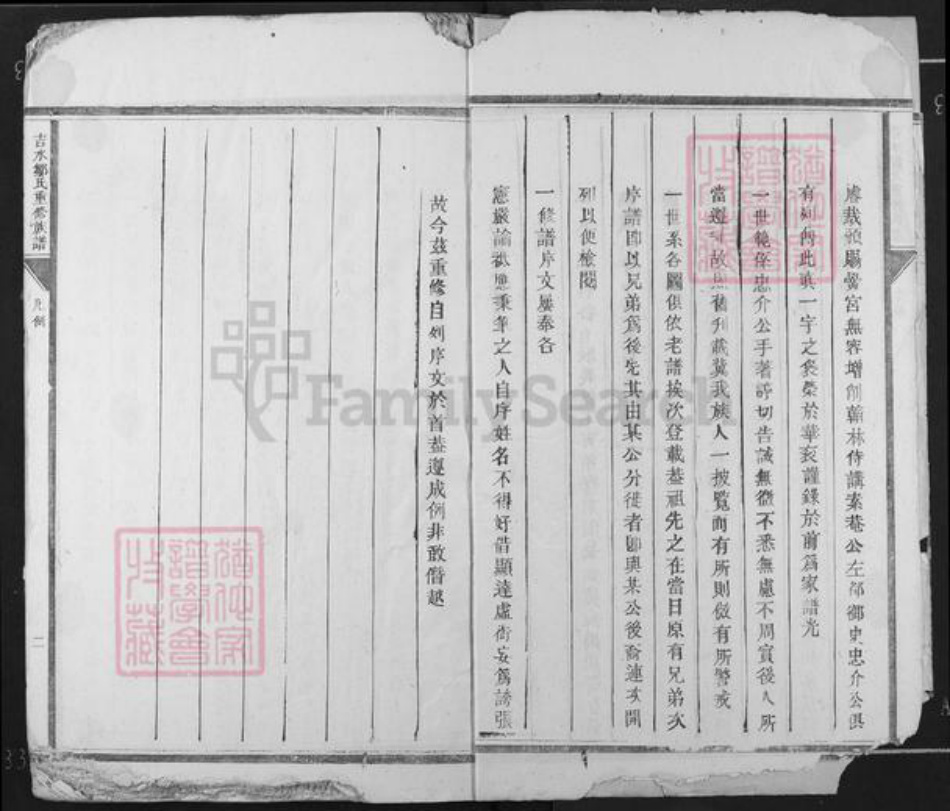 睿裁頒賜黌宮無容增創翰林侍講素菴公左都御史忠介公俱
有列傳此真一字之褒榮於華袞謹錄於前為家譜光
一世範係忠介公手著諄切告誡無微不悉無慮不周實後人所
當遵守故照舊刊載冀我族人一披覽而有所則傚有所警戒
一世系各圖俱依老譜挨次登載蓋祖先之在當日原有兄弟次
序譜即以兄弟為後先其由某公分徙者即與某公後裔連次開
列以便檢閱
一修譜序文屢奉各
憲嚴諭祗應秉筆之人自序姓名不得好借顯達虛銜妄為誇張
故今茲重修自列序文於首蓋遵成例非敢僭越
吉水鄒氏重修族譜
凡例
二
猶他家
譜學會
收藏
猶他家
譜學會
收藏
FamilySearch